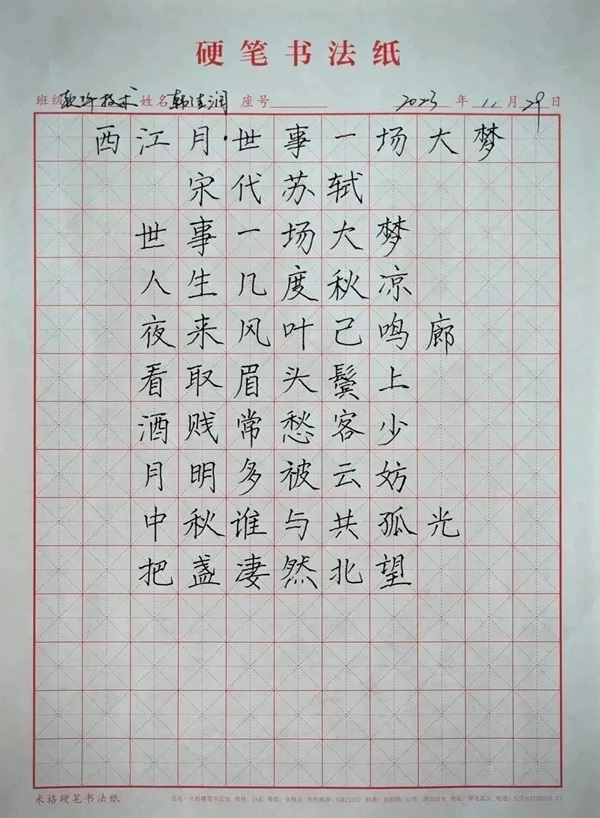 硬笔书法纸
班级 软件技术 姓名 韩佳润 座号 2023 年 11 月 29 日
西江月·世事一场大梦
宋代苏轼
世事一场大梦
人生几度秋凉
夜来风叶已鸣廊
看取眉头鬓上
酒贱常愁客少
月明多被云妨
中秋谁与共孤光
把盏凄然北望
米格硬笔书法纸